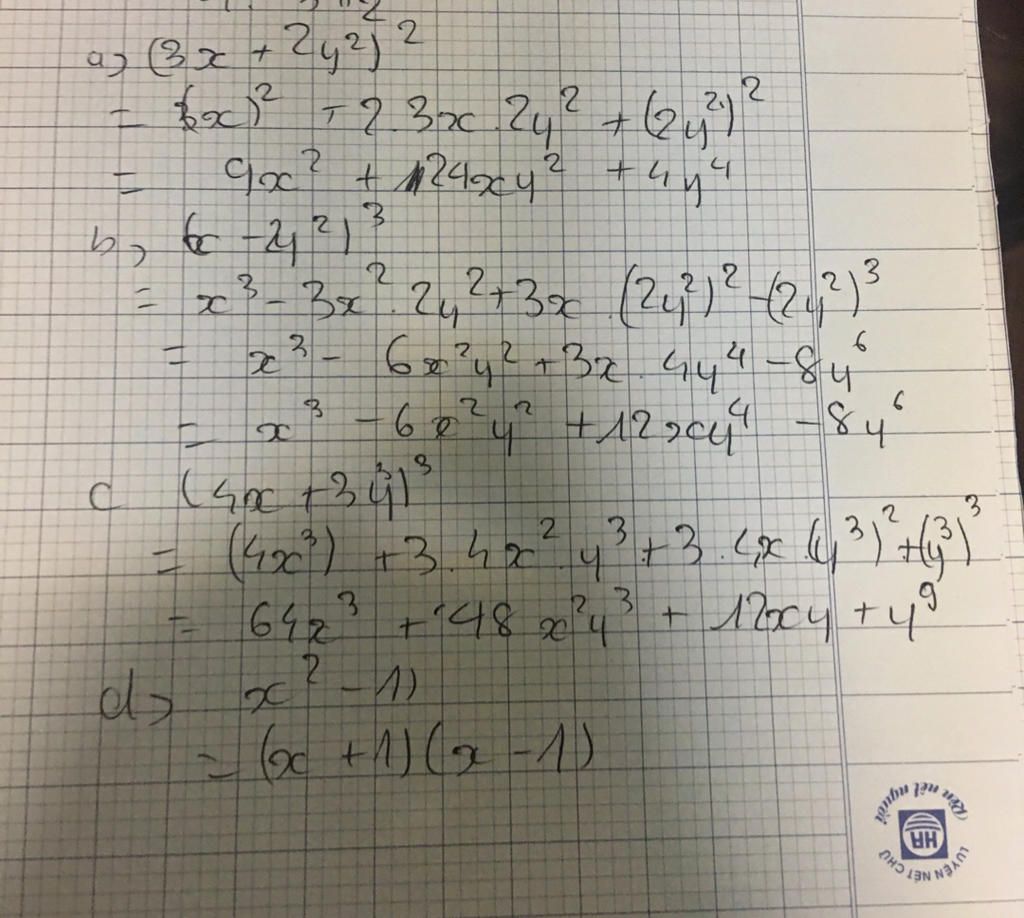 a) (3x + 2y²)²
= (3x)² + 2.3x.2y² + (2y²)²
= 9x² + 124xy² + 4y⁴
b, (x - 2y²)³
= x³ - 3x².2y² + 3x.(2y²)² - (2y²)³
= x³ - 6x²y² + 3x.4y⁴ - 8y⁶
= x³ - 6x²y² + 12xy⁴ - 8y⁶
c (4x + 3y³)³
= (4x³) + 3.4x².y³ + 3.4x.(y³)² + (y³)³
= 64x³ + 48x²y³ + 12xy + y⁹
d> x² - 1)
= (x + 1)(x - 1)
Rèn nết người
HA
LUYỆN NÉT CHỮ